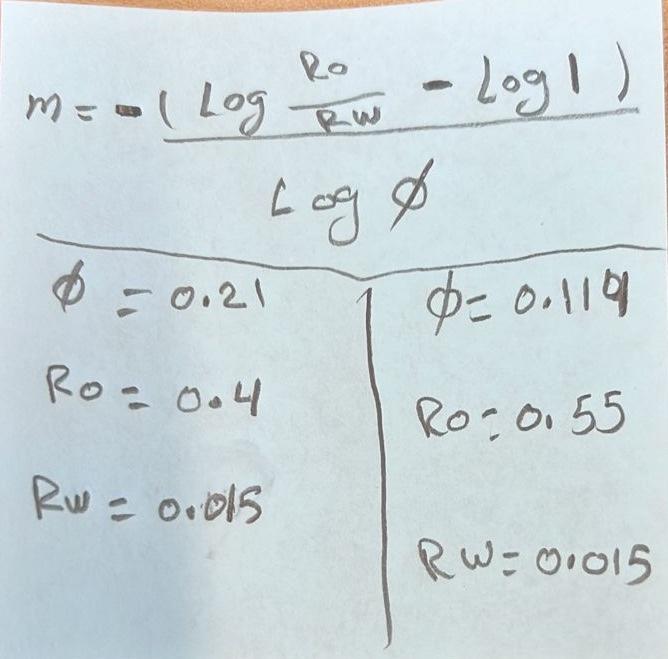 m = - ( Log Ro/RW - Log 1 )
Log ϕ
ϕ = 0.21
Ro = 0.4
Rw = 0.015
ϕ = 0.119
Ro = 0.55
RW = 0.015